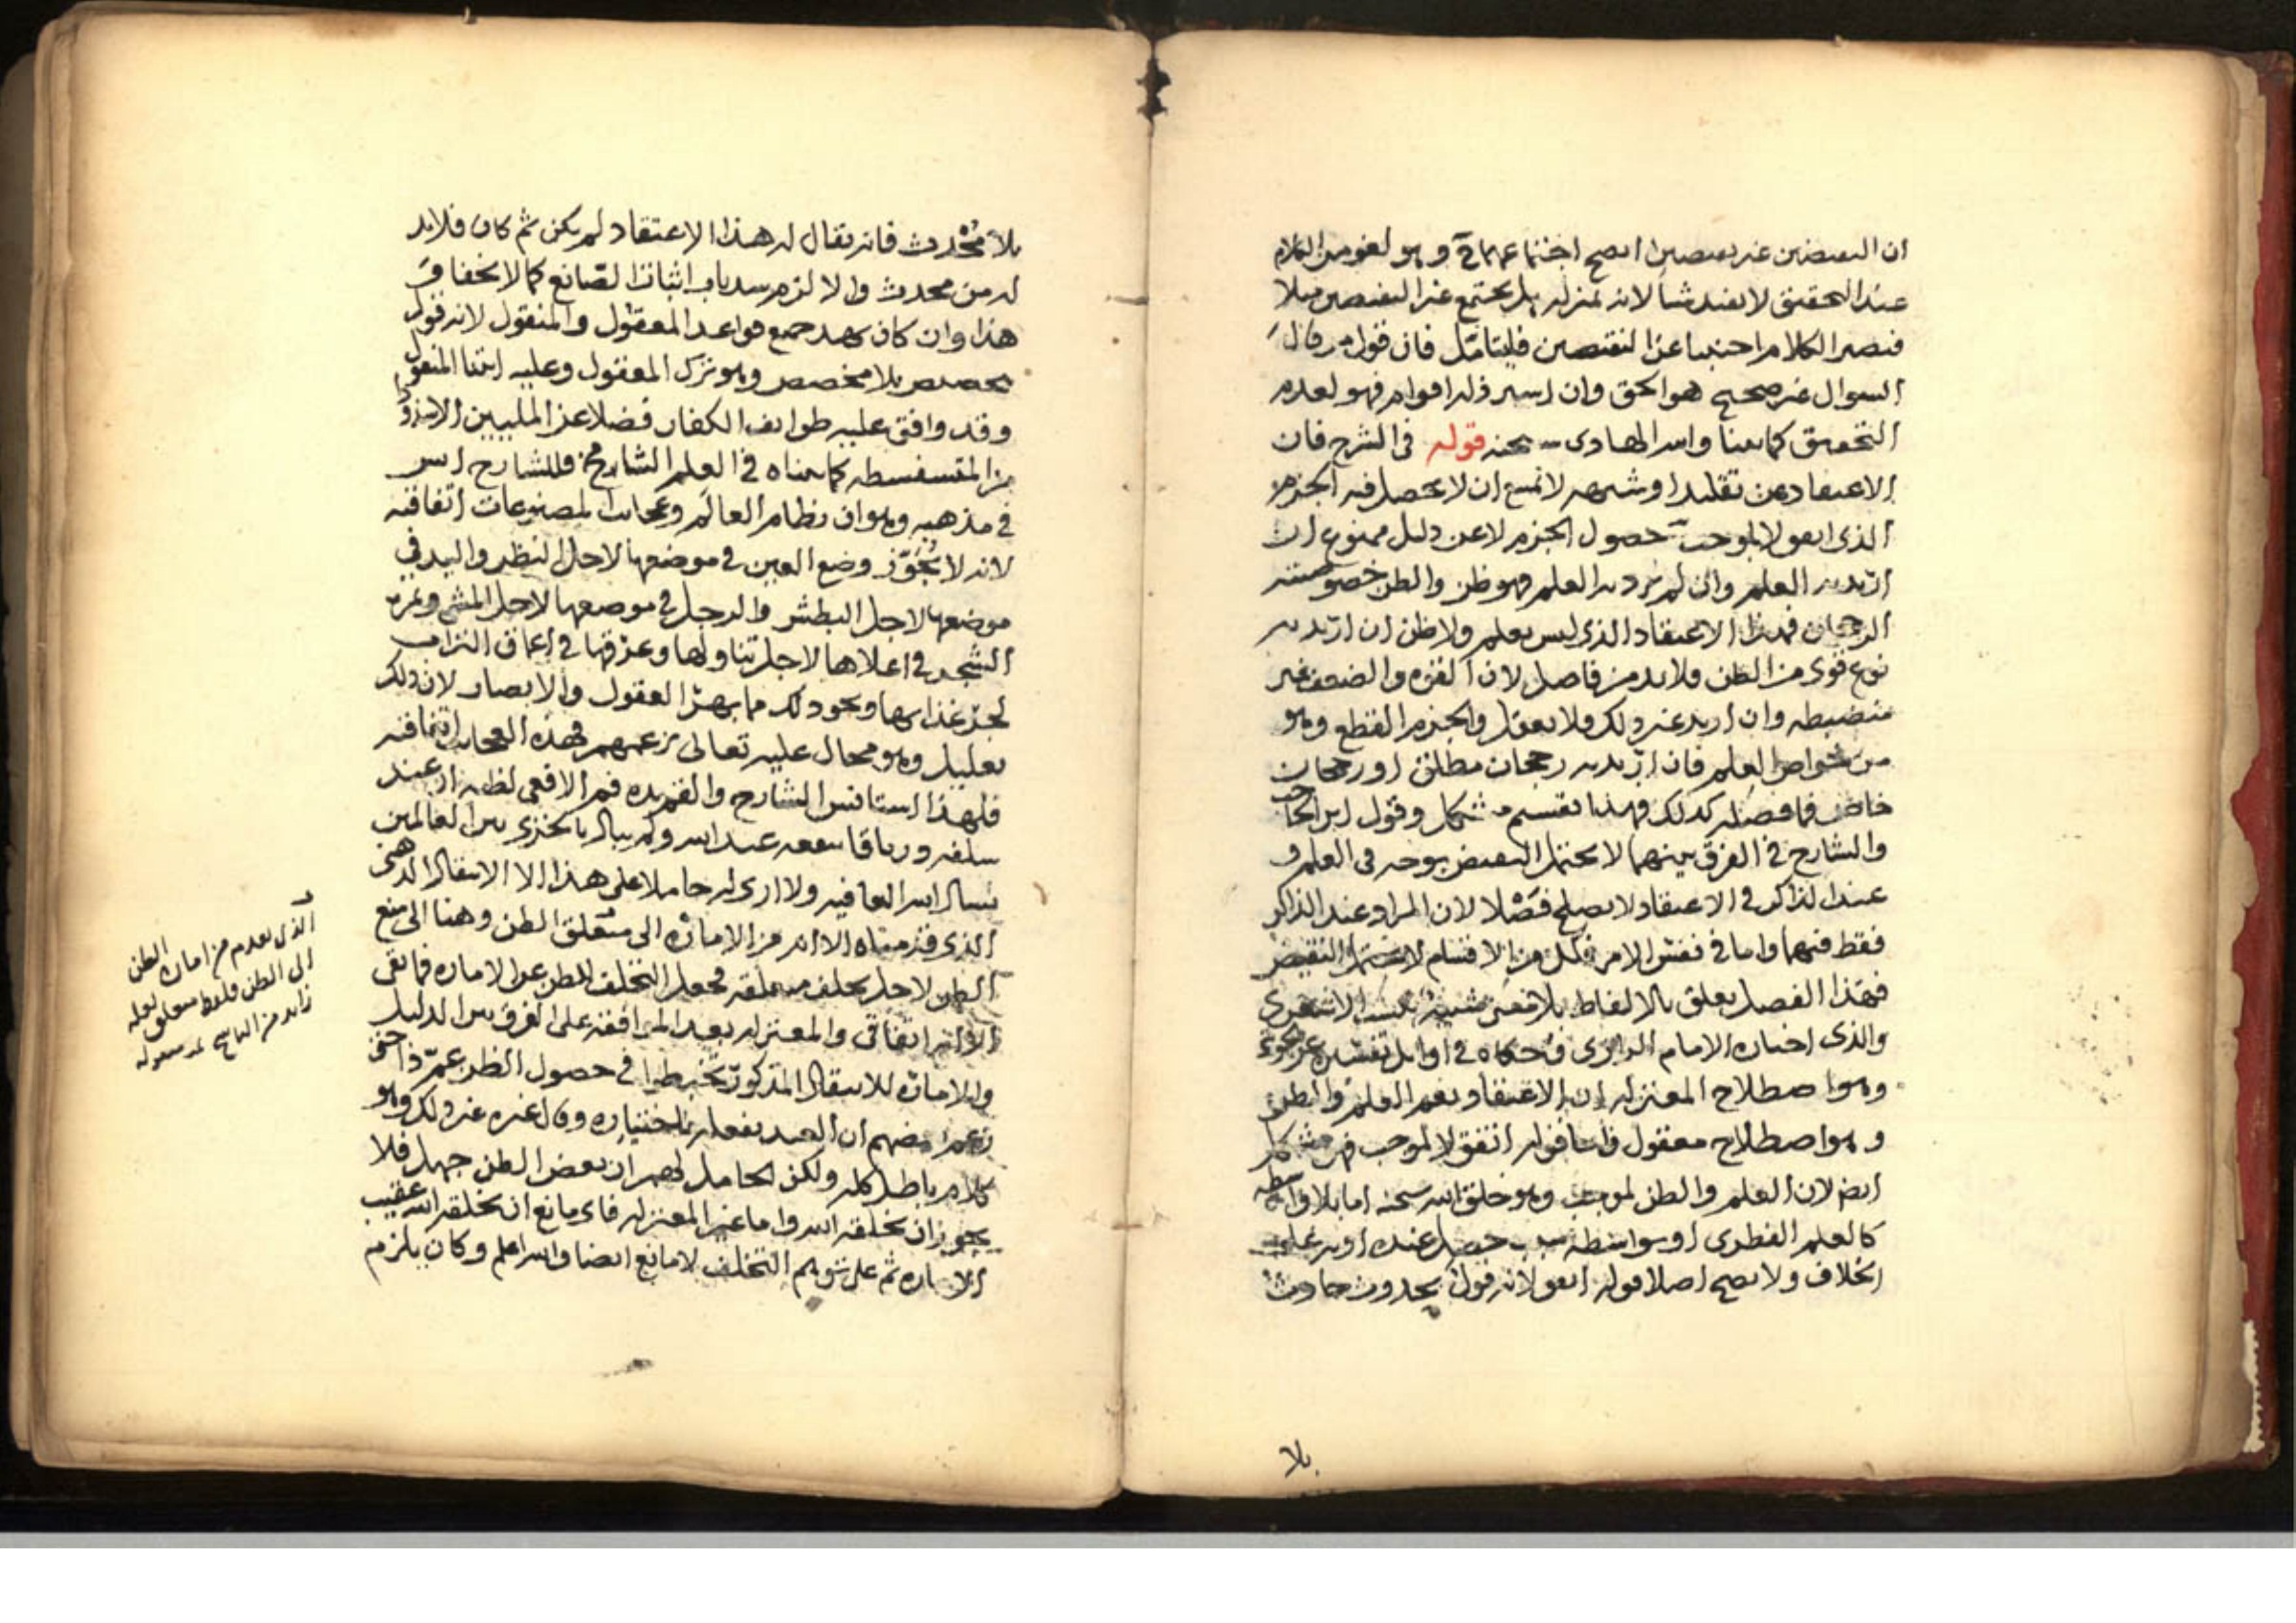 ان النقيضين غير نقيضين ايصح اجتماعهما في وهو لغو من الكلام
عند التحقيق لا يفيد شيأ لانه بمنزلة بل يجتمع غير النقيضين مثلا
فيصير الكلام اجنبيا عن النقيضين فليتامل فان قول من قال
السوال غير صحيح هو الحق وان اسير ذلك اقوام فهو لعدم
التحقيق كما بينا والله الهادى بحنه قوله فى الشرح فان
الاعتقاد عن تقليد او شبهه لا يمنع ان لا يحصل فيه الجزم
الذى اتفق لا لموجب حصول الجزم لا عن دليل ممنوع ان
اريد به العلم وان لم يرد به العلم فهو ظن والظن خصوصيته
الرجحان فهذا الاعتقاد الذى ليس بعلم ولا ظن ان اريد به
نوع قوى من الظن فلابد من فاصل لان القوه والضعف غير
منضبطه وان اريد غير ذلك فلا يعقل والجزم القطع وهو
من خواص العلم فان اريد به رجحان مطلق او رجحان
خاص فما فصله كذلك فهذا تقسيم مشكل وقول ابن الحاجب
والشارح في الفرق بينهما لا يحتمل النقيض بوجه فى العلم و
عند الذاكر في الاعتقاد لا يصلح فصلا لان المراد عند الذاكر
فقط فيهما واما في نفس الامر فكل من الاقسام لا يحتمل النقيض
فهذا الفصل تعلق بالالفاظ بلا معنى الاشعرى
والذى اختاره الامام الرازى وحكاه في اوايل تفسيره عن
وهو اصطلاح المعتزله ان الاعتقاد يعم العلم والظن
وهو اصطلاح معقول واما قوله اتفق لا لموجب فهو مشكل
ايضا لان العلم والظن لموجب وهو خلق الله سبحنه اما بلا واسطه
كالعلم الفطرى او بواسطه سبب حصل عنده او به على
الخلاف ولا يصح اصلا قوله اتفق لانه قول بحدوث حادث
بلا
بلا مُحْدث فانه يقال له هذا الاعتقاد لم يكن ثم كان فلابد
له من محدث والا لزم سد باب اثبات الصانع كما لا يخفاق
هذا وان كان يهد جميع قواعد المعقول والمنقول لانه قول
بتخصيص بلا مخصص وهو ترك المعقول وعليه ابتنا المنقول
وقد وافق عليه طوايف الكفار فضلا عن المليين الا شذوذا
من المتسفسطه كما بيناه في العلم الشامخ فللشارح اسر
في مذهبه وهو ان نظام العالم وعجائب المصنوعات اتفاقيه
لانه لا يُجَوّز وضع العين في موضعها لاجل النظر واليد في
موضعها لاجل البطش والرجل في موضعها لاجل المشي وثمرة
الشجر في اعلاها لاجل تناولها وعزقها في اعماق التراب
لجذ غذايها ونحو ذلك مما يهر العقول والابصار لان ذلك
تعليل وهو محال عليه تعالى بزعمهم فهذه العجائب اتفاقيه
فلهذا استانس الشارح والقم يده فم الافعى لظنه ان عند
سلفه درياقا ينفعه عند الله ولم يبال بالخزى بين العالمين
نسال الله العافيه ولا ارى له حاملا على هذا الا الانتقال الذهنى
الذى قدمناه الا انه من الاماره الى متعلق الظن وهنا الى منع
الظن لاجل تخلف متعلقه فجعل التخلف للظن عن الاماره فما بقى
الا انه اتفاقى والمعتزله بعد الموافقه على الفرق بين الدليل
والاماره للانتقال المذكور تخبطوا في حصول الظن عمّ ذا حتى
زعم بعضهم ان العبد يفعله باختياره وقال غيره غير ذلك وهو
كلام باطل كله ولكن الحامل لهم ان بعض الظن جهل فلا
يجوز ان يخلقه الله واما غير المعتزله فاى مانع ان يخلقه الله عقيب
الاماره ثم على توهم التخلف لا مانع ايضا والله اعلم وكان يلزم
الذى تقدم من امارة الظن
الى الظن فلفظ متعلق لعله
زايد من الناسخ